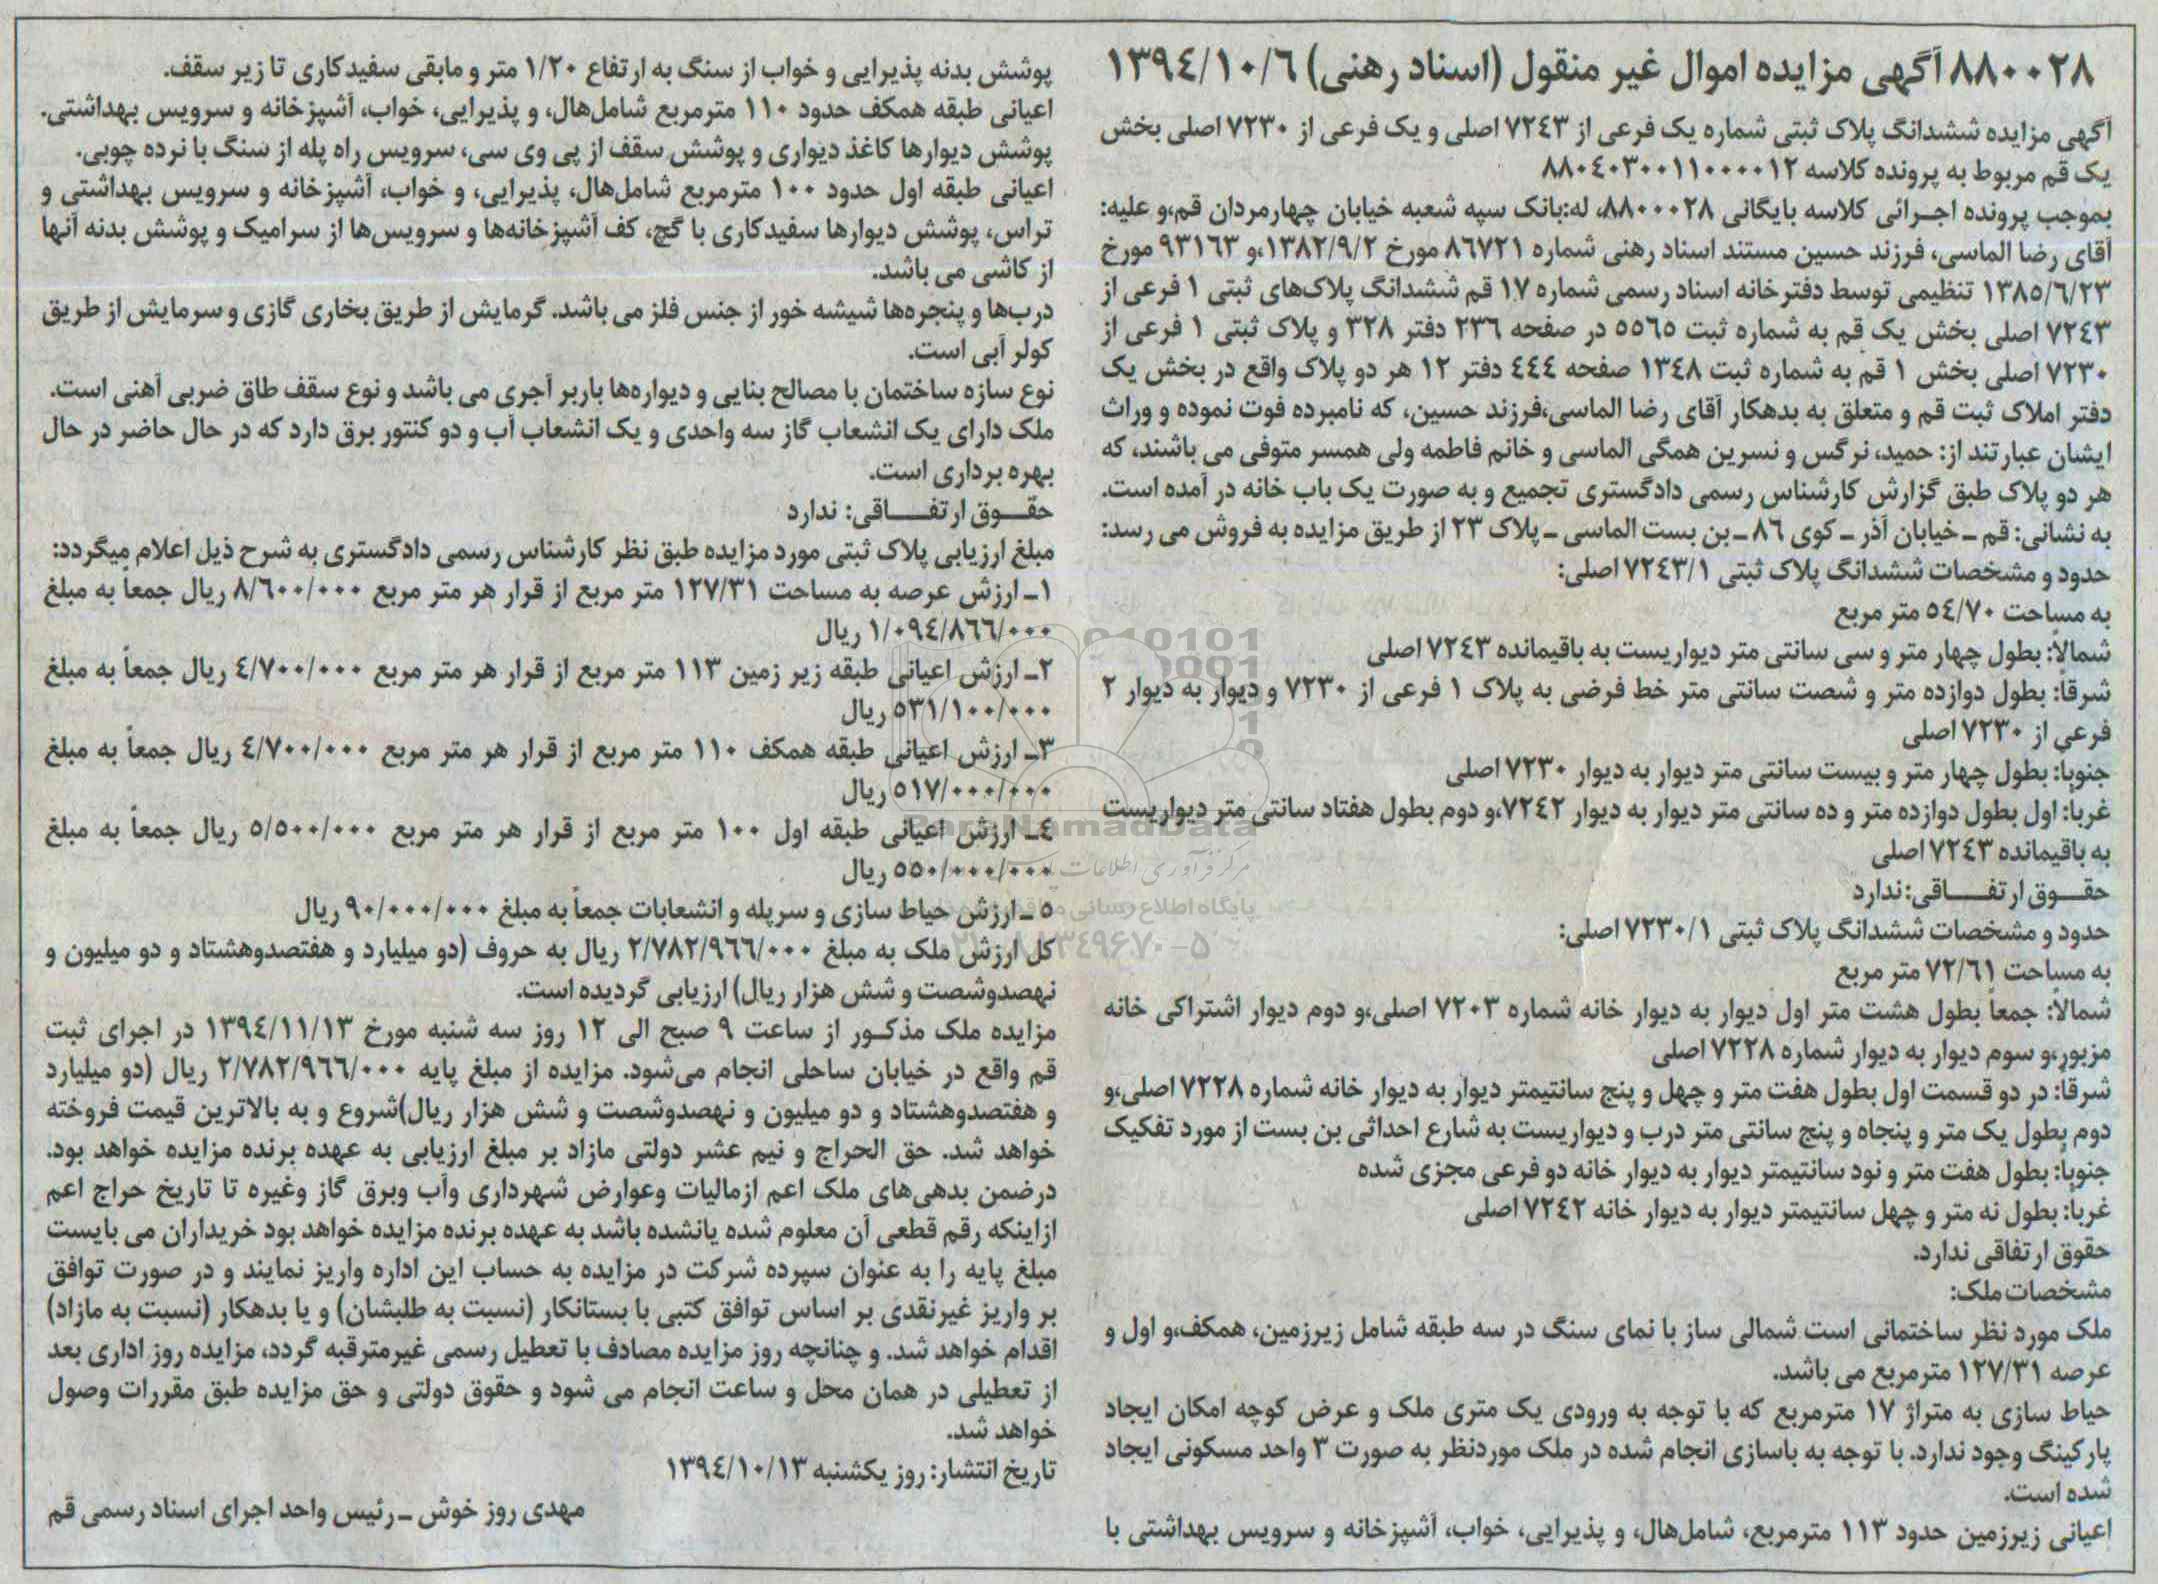 ۸۸۰۰۲۸ آگهی مزایده اموال غیر منقول (اسناد رهنی) ۱۳۹٤/۱۰/٦
آگهی مزایده ششدانگ پلاک ثبتی شماره یک فرعی از ۷۲٤۳ اصلی و یک فرعی از ۷۲۳۰ اصلی بخش
یک قم مربوط به پرونده کلاسه ۸۸۰٤۰۳۰۰۱۱۰۰۰۰۱۲
بموجب پرونده اجرائی کلاسه بایگانی ۸۸۰۰۰۲۸، له:بانک سپه شعبه خیابان چهارمردان قم،و علیه:
آقای رضا الماسی، فرزند حسین مستند اسناد رهنی شماره ۸٦۷۲۱ مورخ ۱۳۸۲/۹/۲،و ۹۳۱٦۳ مورخ
۱۳۸٥/٦/۲۳ تنظیمی توسط دفترخانه اسناد رسمی شماره ۱۷ قم ششدانگ پلاک‌های ثبتی ۱ فرعی از
۷۲٤۳ اصلی بخش یک قم به شماره ثبت ٥٥٦٥ در صفحه ۲۳٦ دفتر ۳۲۸ و پلاک ثبتی ۱ فرعی از
۷۲۳۰ اصلی بخش ۱ قم به شماره ثبت ۱۳٤۸ صفحه ٤٤٤ دفتر ۱۲ هر دو پلاک واقع در بخش یک
دفتر املاک ثبت قم و متعلق به بدهکار آقای رضا الماسی،فرزند حسین، که نامبرده فوت نموده و وراث
ایشان عبارتند از: حمید، نرگس و نسرین همگی الماسی و خانم فاطمه ولی همسر متوفی می باشند، که
هر دو پلاک طبق گزارش کارشناس رسمی دادگستری تجمیع و به صورت یک باب خانه در آمده است.
به نشانی: قم ـ خیابان آذر ـ کوی ۸٦ ـ بن بست الماسی ـ پلاک ۲۳ از طریق مزایده به فروش می رسد:
حدود و مشخصات ششدانگ پلاک ثبتی ۷۲٤۳/۱ اصلی:
به مساحت ٥٤/۷۰ متر مربع
شمالاً: بطول چهار متر و سی سانتی متر دیواریست به باقیمانده ۷۲٤۳ اصلی
شرقاً: بطول دوازده متر و شصت سانتی متر خط فرضی به پلاک ۱ فرعی از ۷۲۳۰ و دیوار به دیوار ۲
فرعی از ۷۲۳۰ اصلی
جنوباً: بطول چهار متر و بیست سانتی متر دیوار به دیوار ۷۲۳۰ اصلی
غرباً: اول بطول دوازده متر و ده سانتی متر دیوار به دیوار ۷۲٤۲،و دوم بطول هفتاد سانتی متر دیواریست
به باقیمانده ۷۲٤۳ اصلی
حقـــوق ارتفـــاقی:ندارد
حدود و مشخصات ششدانگ پلاک ثبتی ۷۲۳۰/۱ اصلی:
به مساحت ۷۲/٦۱ متر مربع
شمالاً: جمعاً بطول هشت متر اول دیوار به دیوار خانه شماره ۷۲۰۳ اصلی،و دوم دیوار اشتراکی خانه
مزبور،و سوم دیوار به دیوار شماره ۷۲۲۸ اصلی
شرقاً: در دو قسمت اول بطول هفت متر و چهل و پنج سانتیمتر دیوار به دیوار خانه شماره ۷۲۲۸ اصلی،و
دوم بطول یک متر و پنجاه و پنج سانتی متر درب و دیواریست به شارع احداثی بن بست از مورد تفکیک
جنوباً: بطول هفت متر و نود سانتیمتر دیوار به دیوار خانه دو فرعی مجزی شده
غرباً: بطول نه متر و چهل سانتیمتر دیوار به دیوار خانه ۷۲٤۲ اصلی
حقوق ارتفاقی ندارد.
مشخصات ملک:
ملک مورد نظر ساختمانی است شمالی ساز با نمای سنگ در سه طبقه شامل زیرزمین، همکف،و اول و
عرصه ۱۲۷/۳۱ مترمربع می باشد.
حیاط سازی به متراژ ۱۷ مترمربع که با توجه به ورودی یک متری ملک و عرض کوچه امکان ایجاد
پارکینگ وجود ندارد. با توجه به باسازی انجام شده در ملک موردنظر به صورت ۳ واحد مسکونی ایجاد
شده است.
اعیانی زیرزمین حدود ۱۱۳ مترمربع، شامل‌هال، و پذیرایی، خواب، آشپزخانه و سرویس بهداشتی با
پوشش بدنه پذیرایی و خواب از سنگ به ارتفاع ۱/۲۰ متر و مابقی سفیدکاری تا زیر سقف.
اعیانی طبقه همکف حدود ۱۱۰ مترمربع شامل‌هال، و پذیرایی، خواب، آشپزخانه و سرویس بهداشتی.
پوشش دیوارها کاغذ دیواری و پوشش سقف از پی وی سی، سرویس راه پله از سنگ با نرده چوبی.
اعیانی طبقه اول حدود ۱۰۰ مترمربع شامل‌هال، پذیرایی، و خواب، آشپزخانه و سرویس بهداشتی و
تراس، پوشش دیوارها سفیدکاری با گچ، کف آشپزخانه‌ها و سرویس‌ها از سرامیک و پوشش بدنه آنها
از کاشی می باشد.
درب‌ها و پنجره‌ها شیشه خور از جنس فلز می باشد. گرمایش از طریق بخاری گازی و سرمایش از طریق
کولر آبی است.
نوع سازه ساختمان با مصالح بنایی و دیواره‌ها باربر آجری می باشد و نوع سقف طاق ضربی آهنی است.
ملک دارای یک انشعاب گاز سه واحدی و یک انشعاب آب و دو کنتور برق دارد که در حال حاضر در حال
بهره برداری است.
حقـــوق ارتفـــاقی: ندارد
مبلغ ارزیابی پلاک ثبتی مورد مزایده طبق نظر کارشناس رسمی دادگستری به شرح ذیل اعلام میگردد:
۱ـ ارزش عرصه به مساحت ۱۲۷/۳۱ متر مربع از قرار هر متر مربع ۸/٦۰۰/۰۰۰ ریال جمعاً به مبلغ
۱/۰۹٤/۸٦٦/۰۰۰ ریال
۲ـ ارزش اعیانی طبقه زیر زمین ۱۱۳ متر مربع از قرار هر متر مربع ٤/۷۰۰/۰۰۰ ریال جمعاً به مبلغ
٥۳۱/۱۰۰/۰۰۰ ریال
۳ـ ارزش اعیانی طبقه همکف ۱۱۰ متر مربع از قرار هر متر مربع ٤/۷۰۰/۰۰۰ ریال جمعاً به مبلغ
٥۱۷/۰۰۰/۰۰۰ ریال
٤ـ ارزش اعیانی طبقه اول ۱۰۰ متر مربع از قرار هر متر مربع ٥/٥۰۰/۰۰۰ ریال جمعاً به مبلغ
٥٥۰/۰۰۰/۰۰۰ ریال
٥ ـ ارزش حیاط سازی و سرپله و انشعابات جمعاً به مبلغ ۹۰/۰۰۰/۰۰۰ ریال
کل ارزش ملک به مبلغ ۲/۷۸۲/۹٦٦/۰۰۰ ریال به حروف (دو میلیارد و هفتصدوهشتاد و دو میلیون و
نهصدوشصت و شش هزار ریال) ارزیابی گردیده است.
مزایده ملک مذکـور از ساعت ۹ صبح الی ۱۲ روز سه شنبه مورخ ۱۳۹٤/۱۱/۱۳ در اجرای ثبت
قم واقع در خیابان ساحلی انجام می‌شود. مزایده از مبلغ پایه ۲/۷۸۲/۹٦٦/۰۰۰ ریال (دو میلیارد
و هفتصدوهشتاد و دو میلیون و نهصدوشصت و شش هزار ریال)شروع و به بالاترین قیمت فروخته
خواهد شد. حق الحراج و نیم عشر دولتی مازاد بر مبلغ ارزیابی به عهده برنده مزایده خواهد بود.
درضمن بدهی‌های ملک اعم ازمالیات وعوارض شهرداری وآب وبرق گاز وغیره تا تاریخ حراج اعم
ازاینکه رقم قطعی آن معلوم شده یانشده باشد به عهده برنده مزایده خواهد بود خریداران می بایست
مبلغ پایه را به عنوان سپرده شرکت در مزایده به حساب این اداره واریز نمایند و در صورت توافق
بر واریز غیرنقدی بر اساس توافق کتبی با بستانکار (نسبت به طلبشان) و یا بدهکار (نسبت به مازاد)
اقدام خواهد شد. و چنانچه روز مزایده مصادف با تعطیل رسمی غیرمترقبه گردد، مزایده روز اداری بعد
از تعطیلی در همان محل و ساعت انجام می شود و حقوق دولتی و حق مزایده طبق مقررات وصول
خواهد شد.
تاریخ انتشار: روز یکشنبه ۱۳۹٤/۱۰/۱۳
مهدی روز خوش ـ رئیس واحد اجرای اسناد رسمی قم